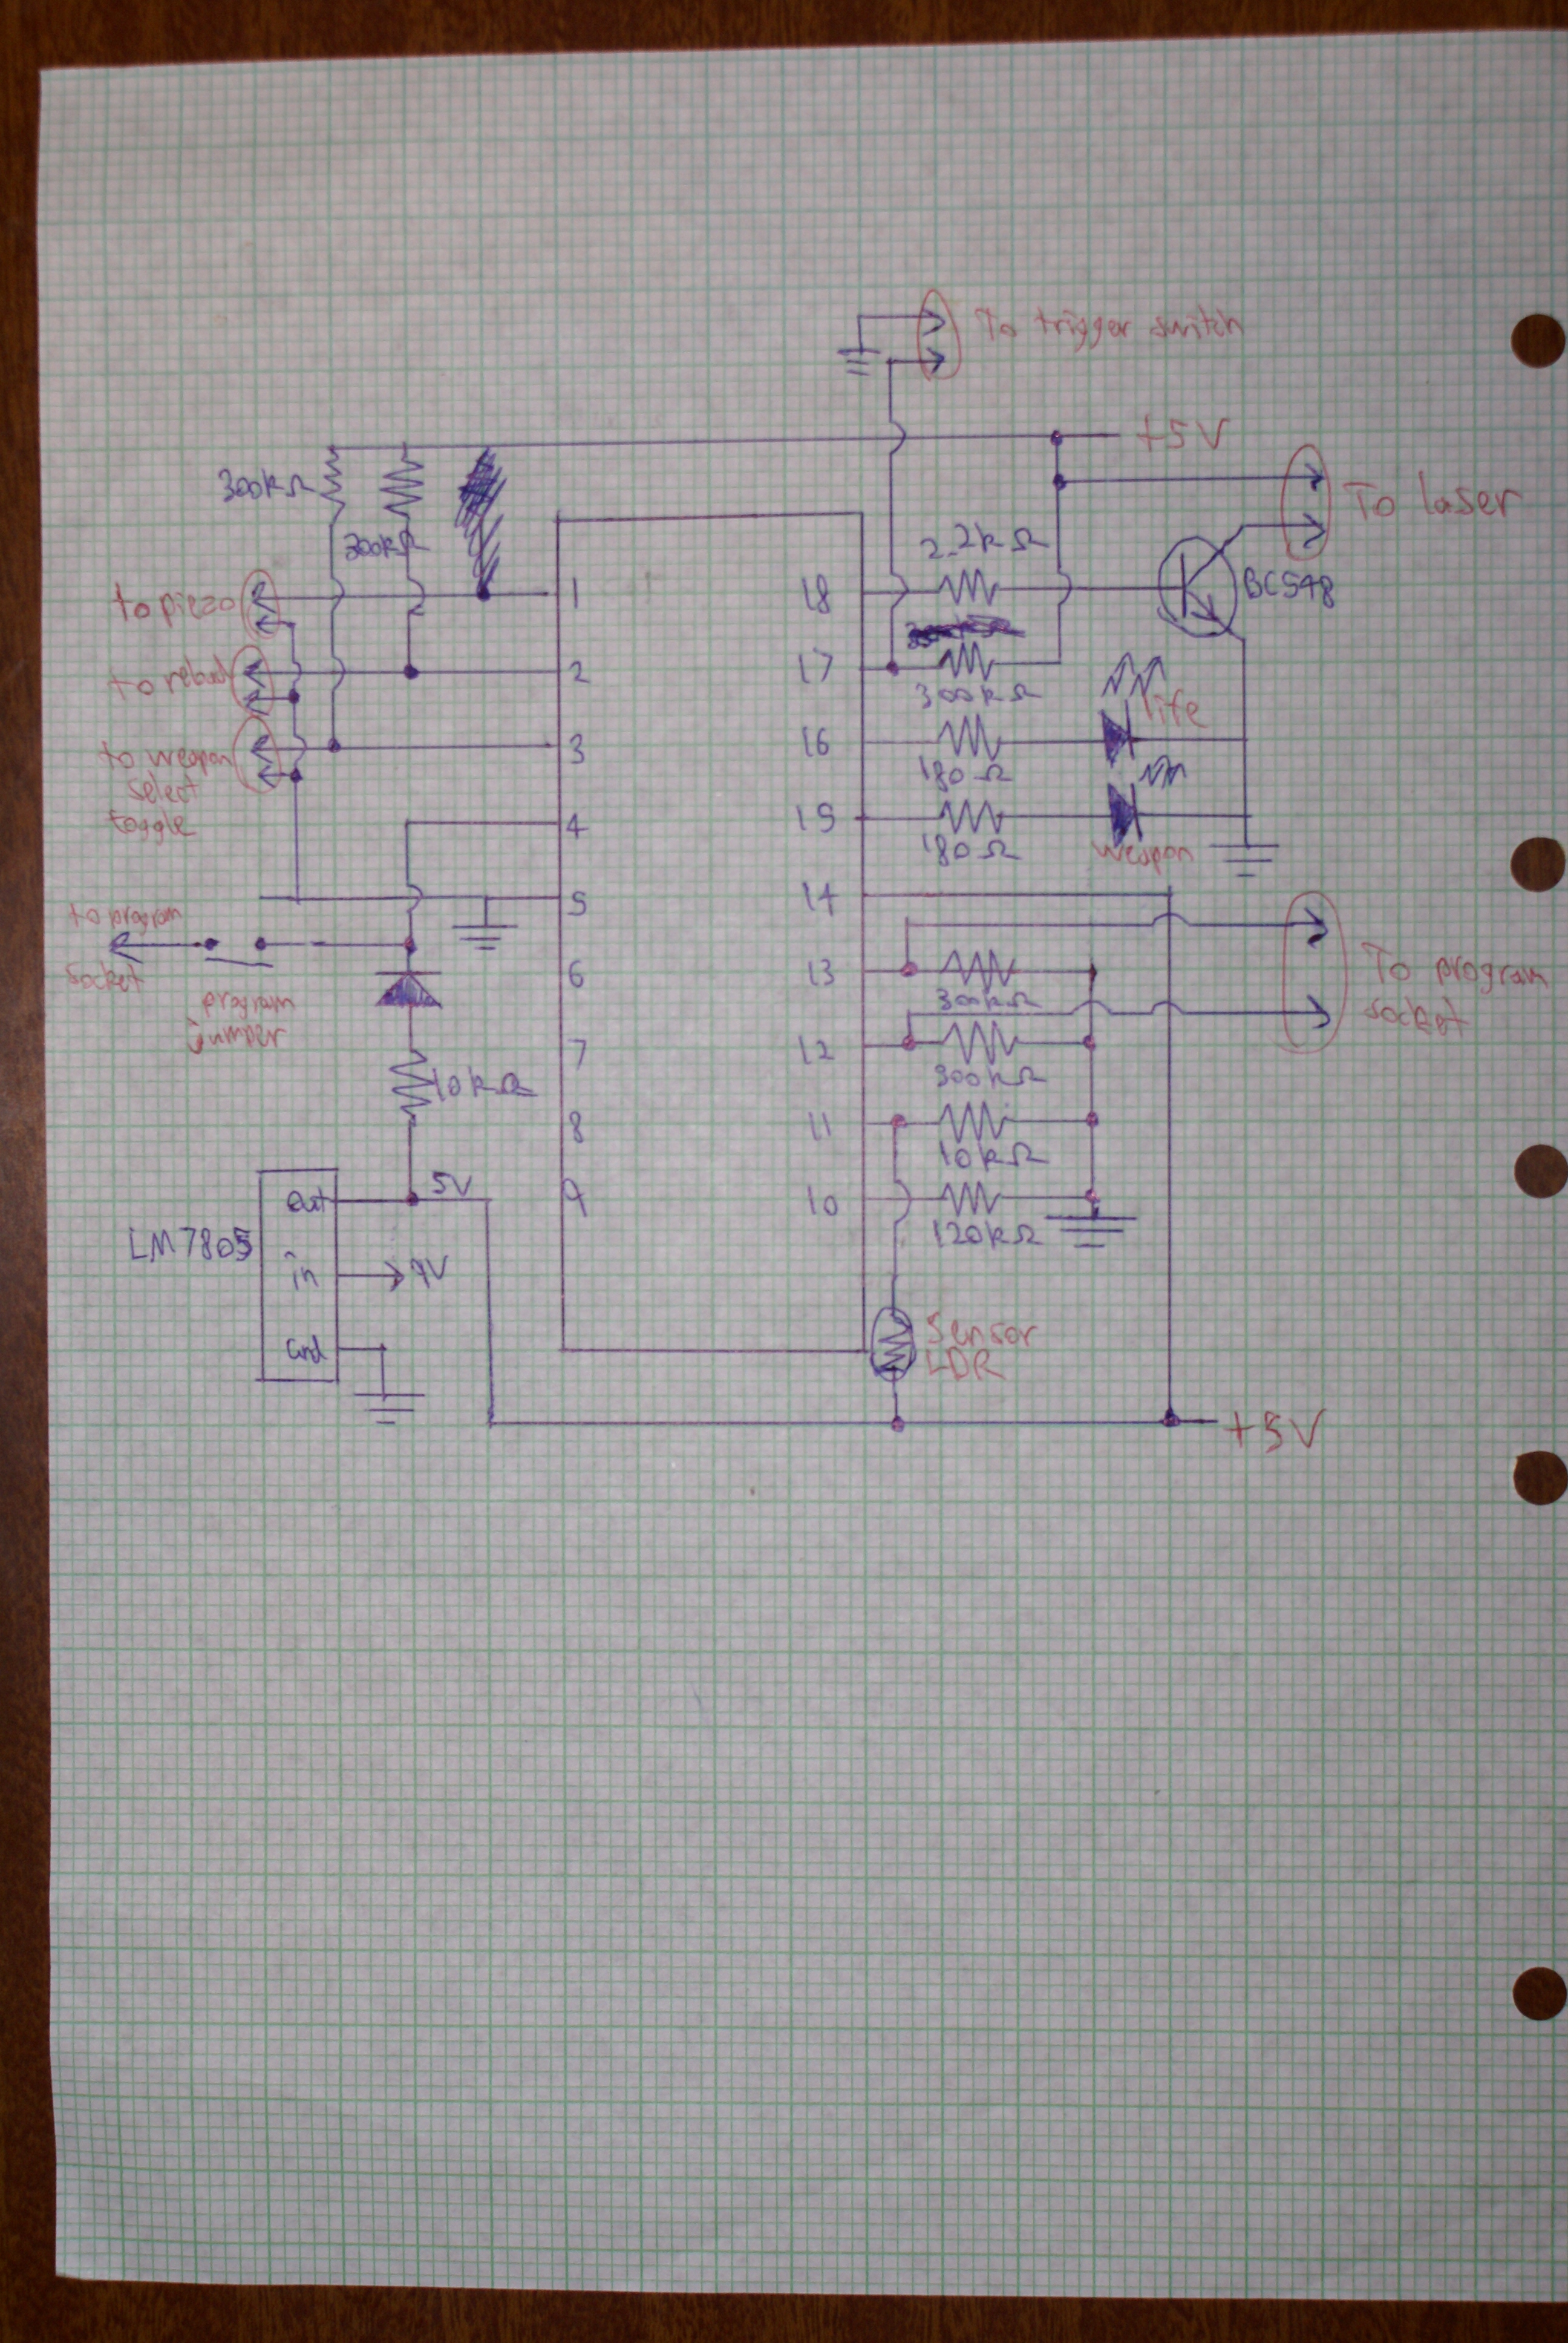 To trigger switch
+5V
300kΩ
300kΩ
To laser
2.2kΩ
BC548
to piezo
1
18
to reload
2
17
300kΩ
life
to weapon
select
toggle
3
16
180Ω
4
15
180Ω
weapon
5
14
to program
socket
program
jumper
6
13
300kΩ
To program
socket
7
12
300kΩ
10kΩ
8
11
10kΩ
5V
9
10
120kΩ
LM7805
Out
in
9V
Gnd
Sensor
LDR
+5V